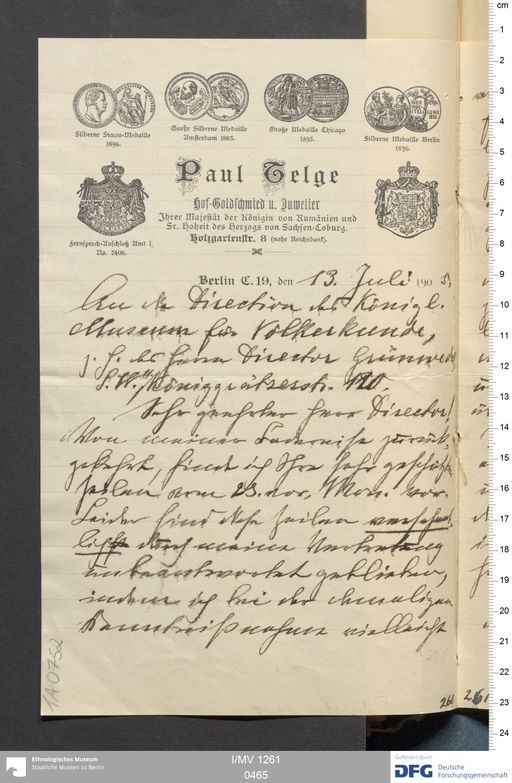 Silberne Staats-Medaille
1896.
Große Silberne Medaille
Amsterdam 1883.
Große Medaille Chicago
1893.
Silberne Medaille Berlin
1896.
Paul Telge
Hof-Goldschmied u. Juwelier
Ihrer Majestät der Königin von Rumänien und
Sr. Hoheit des Herzogs von Sachsen-Coburg.
Holzgartenstr. 8 (nahe Reichsbank).
Fernsprech-Anschluß Amt I,
No. 7408.
Berlin C. 19, den 13. Juli 190
An die Direction des Königl.
Museum für Völkerkunde,
z. H. des Herrn Director Grünwedel
S.W. Königgrätzerstr. 120.
Sehr geehrter Herr Director!
Von meiner Badereise zurück-
gekehrt, finde ich Ihre sehr geschätzten
Zeilen vom 23. vor. Mon. vor.
Leider sind diese Zeilen versehent-
lich durch meine Vertretung
unbeantwortet geblieben,
indem ich bei der damaligen
Kenntnißnahme vielleicht
1A0752
260
261
cm
1
2
3
4
5
6
7
8
9
10
11
12
13
14
15
16
17
18
19
20
21
22
23
24
Ethnologisches Museum
Staatliche Museen zu Berlin
I/MV 1261
0465
Gefördert durch
DFG Deutsche
Forschungsgemeinschaft